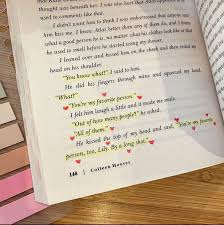 thought was beneath her. I was also hurt that Atlas
used to comments like that.
I didn't want him to think I was embarrassed that anyone saw
him kiss me. I know Atlas better than any of them do, and I know
what a good person he is, no matter what his clothes look like or that
he used to smell before he started using my shower.
I leaned over and kissed him on the cheek and then rested my
head on his shoulder.
"You know what?" I said to him.
He slid his fingers through mine and squeezed my hand.
"What?"
"You're my favorite person."
I felt him laugh a little and it made me smile.
"Out of how many people?" he asked.
"All of them."
He kissed the top of my head and said, "You're my favorite
person, too, Lily. By a long shot."
146 | Colleen Hoover